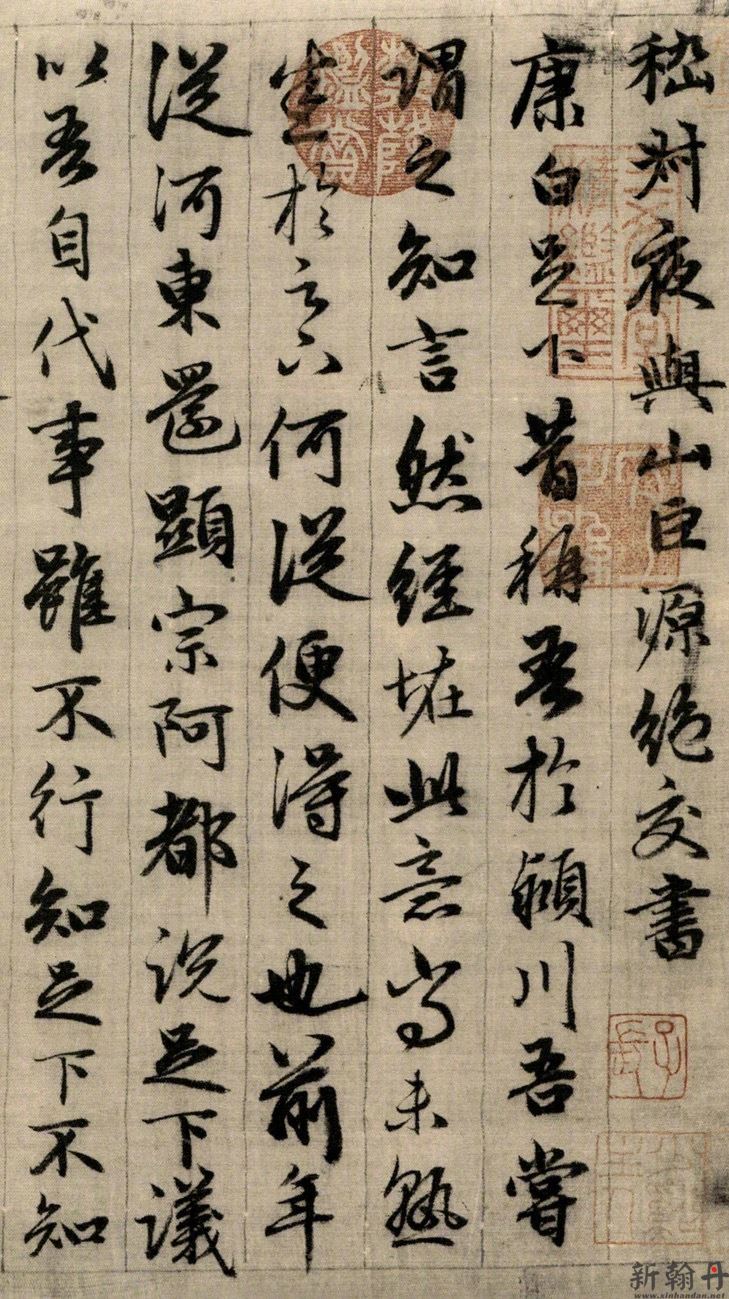 嵇叔夜與山巨源絕交書
康白足下昔稱吾於潁川吾嘗
謂之知言然經怪此意尚未熟
悉於足下何從便得之也前年
從河東還顯宗阿都說足下議
以吾自代事雖不行知足下不知
三希堂精鑑璽
宜子孫
新翰丹
www.xinhandan.net